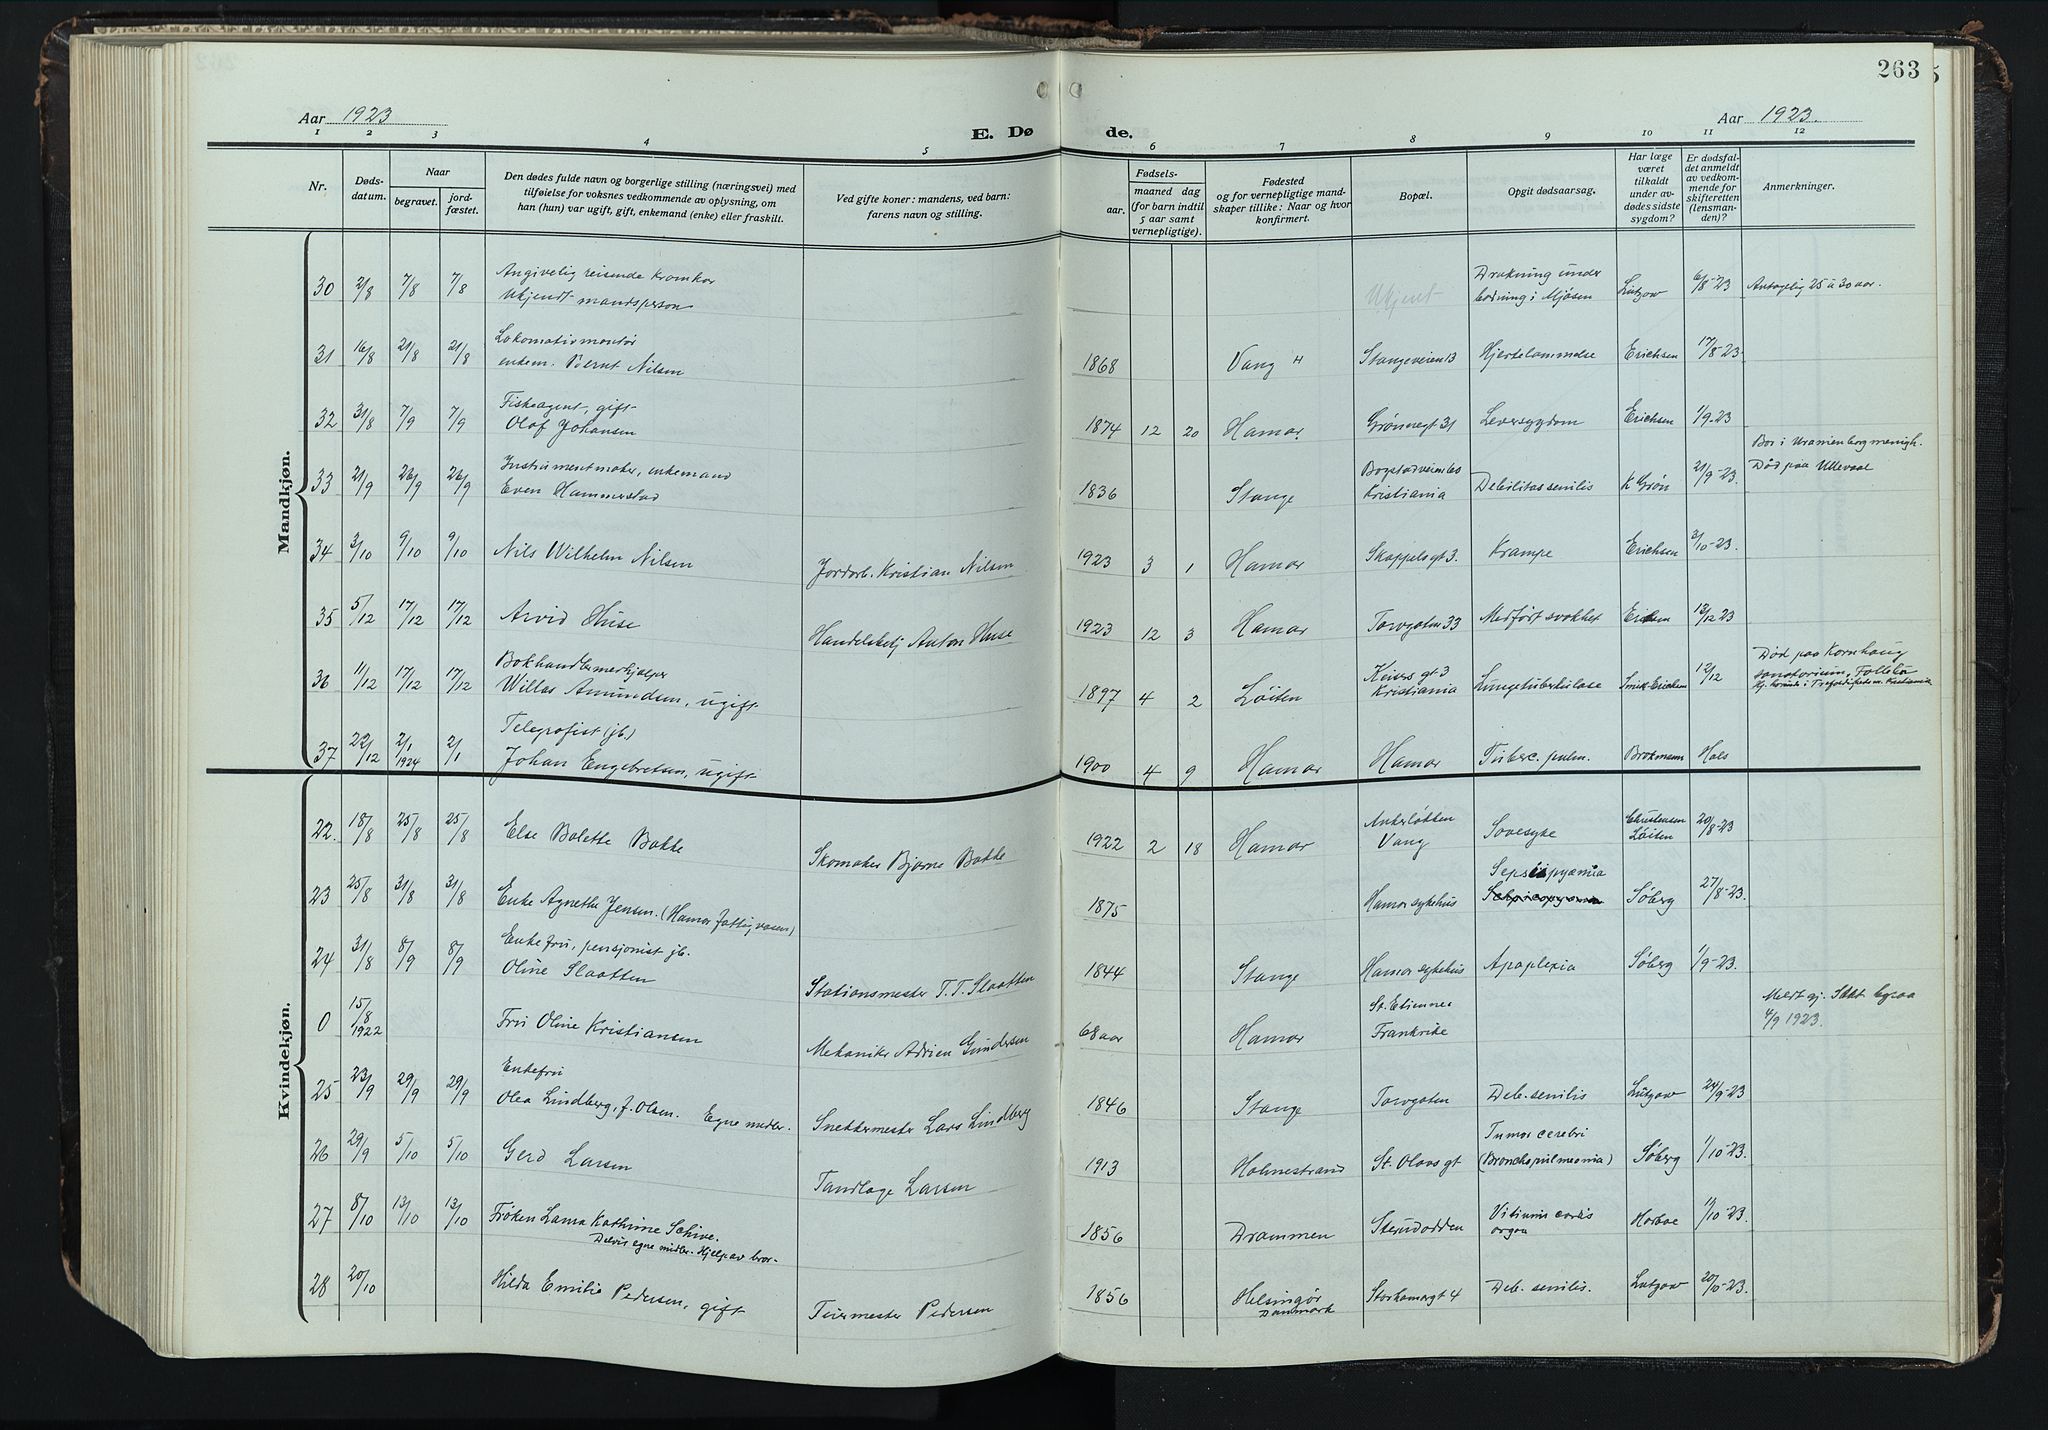 263
Aar 1923
E. Dø de.
Aar 1923.
1 2 3 4 5 6 7 8 9 10 11 12
Nr.
Døds-
datum.
Naar
begravet.
jord-
fæstet.
Den dødes fulde navn og borgerlige stilling (næringsvei) med
tilføielse for voksnes vedkommende av oplysning, om
han (hun) var ugift, gift, enkemand (enke) eller fraskilt.
Ved gifte koner: mandens, ved barn:
farens navn og stilling.
Fødsels-
aar.
maaned dag
(for barn indtil
5 aar samt
vernepligtige).
Fødested
og for vernepligtige mand-
skaper tillike: Naar og hvor
konfirmert.
Bopæl.
Opgit dødsaarsag.
Har læge
været
tilkaldt
under av-
dødes sidste
sygdom?
Er dødsfal-
det anmeldt
av vedkom-
mende for
skifteretten
(lensman-
den)?
Anmerkninger.
Mandkjøn.
30 2/8 7/8 7/8 Angivelig reisende
Ukjendt mandsperson
Ukjent
Drukning under
badning i Mjøsen
Lützow 6/8-23 Antagelig 25 à 30 aar.
31 16/8 21/8 21/8 Lokomotivmontør
enkem. Bernt Nilsen
1868 Vang H Stangeveien 13 Hjertelammelse Erichsen 17/8-23
32 31/8 7/9 7/9 Fiskeagent, gift
Olaf Johansen
1874 12 20 Hamar Grønnegt 31 Leversygdom Erichsen 1/9-23
33 21/9 26/9 26/9 Instrumentmaker, enkemand
Even Hammerstad
1836 Stange
Kristiania
Debilitas senilis K Grøn 21/9-23
Bor i Uranienborg menigh.
Død paa Ullevaal
34 3/10 9/10 9/10 Nils Wilhelm Nilsen
Jordarb. Kristian Nilsen
1923 3 1 Hamar Skappelsgt 3. Krampe Erichsen 3/10-23.
35 5/12 17/12 17/12 Arvid Huse
Handelsbetj Anton Huse
1923 12 3 Hamar Torvgaten 33 Medført svakhet 12/12 23
36 11/12 17/12 17/12 Bokhandlermedhjælper
Willas Amundsen, ugift
1897 4 2 Løiten gt 3
Kristiania
Lungetuberkulose 12/12
Død paa Kornhaug
sanatorium, Follebu
37 22/12 2/1 1924 2/1 Telegrafist (jb.)
Johan Engebretsen, ugift
1900 4 9 Hamar Hamar Tuberc. pulm. Brokmann Hals
Kvindekjøn.
22. 18/8 25/8 25/8 Else Bolette Bakke
Skomaker Bjarne Bakke
1922 2 18 Hamar Ankerløkken
Vang
Sovesyke
Christensen
Løiten
20/8-23
23 25/8 31/8 31/8 Enke Agnethe Jensen. (Hamar fattigvæsen)
1875 Hamar sykehus
Sepsis pyæmia
Søberg 27/8-23.
24 31/8 8/9 8/9 Enkefru, pensjonist jb.
Oline Slaatten
Stationsmester T. T. Slaatten
1844 Stange Hamar sykehus Apoplexia Søberg 1/9-23.
0 15/8 1922 Fru Oline Kristiansen
Mekaniker Adrien Gundersen
68 aar Hamar
St. Etiennes
Frankrike
4/9 1923.
25 23/9 29/9 29/9 Enkefru
Olea Lindberg, f. Olsen. Egne midler.
Snekkermester Lars Lindberg
1846 Stange Torvgaten Deb. senilis Lützow 24/9-23
26 29/9 5/10 5/10 Gerd Larsen
Tandlæge Larsen
1913 Holmestrand St. Olavs gt
Tumor cerebri
(Bronchopnlmeonia)
Søberg 1/10-23.
27 8/10 13/10 13/10 Frøken Laura Kathrine Schive.
Delvis egne midler. Hjelp av bror.
1856 Drammen Sterudodden
Vitium cordis
organ
Horboe 11/10-23.
28 20/10 Hilda Emilie Pedersen, gift
Murmester Pedersen
1856 Helsingør
Danmark
Storhamargt 4 Deb. senilis. Lützow 20/10-23.